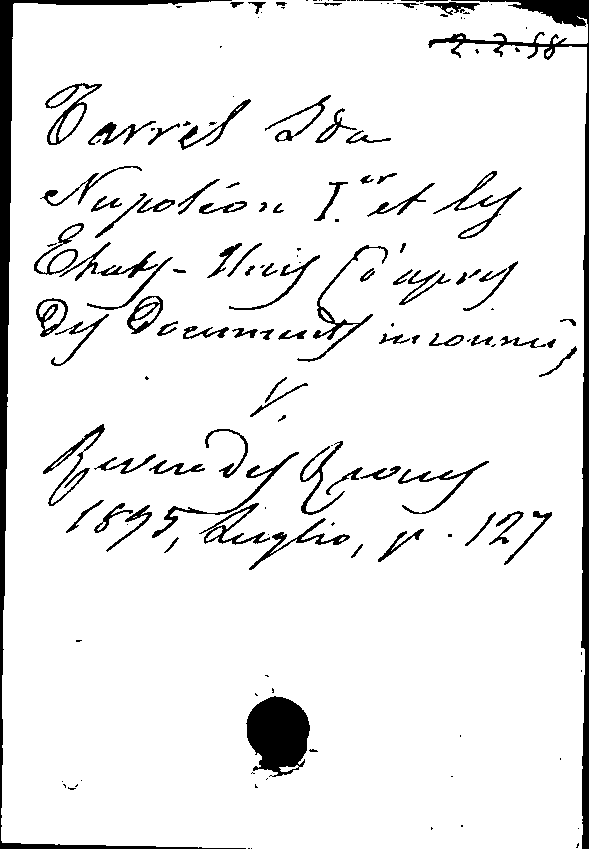 2.2.58
Tarrel Ida
Napoléon I.er et les
Etats-Unis (d'après
des documents inconnus,
V.
Revue des Revues
1895, Luglio, p. 127